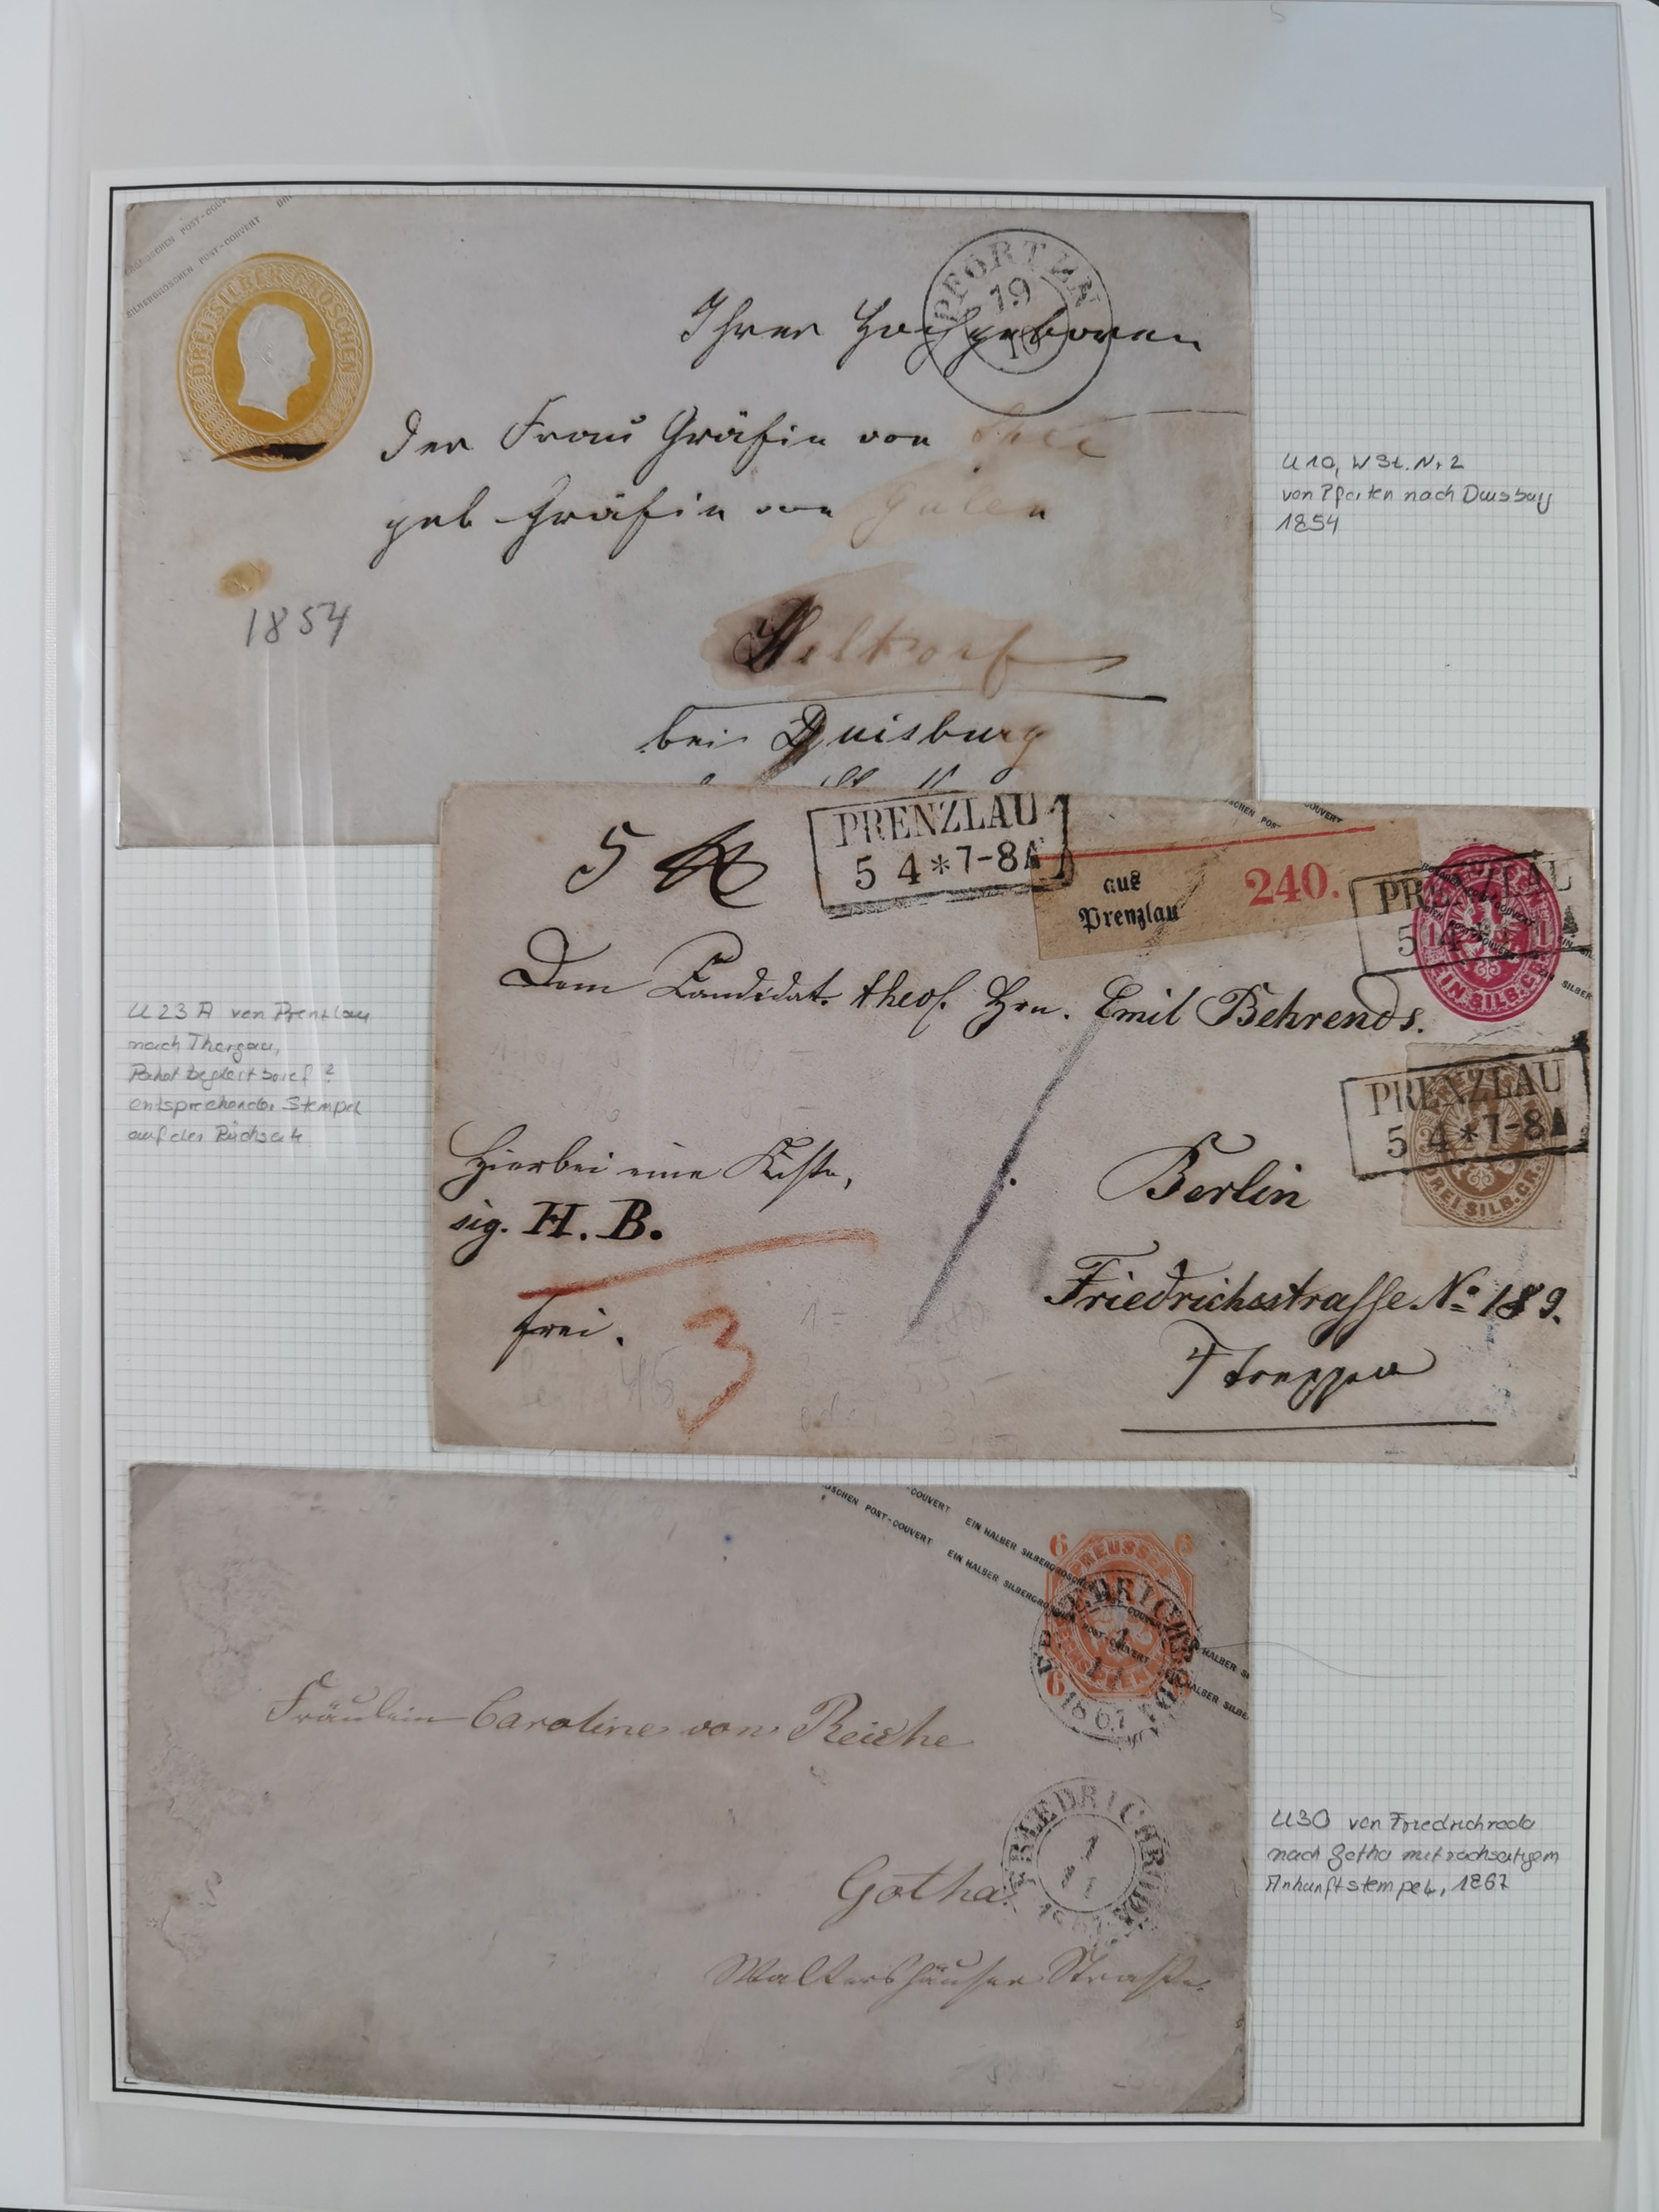 SILBERGROSCHEN POST-COUVERT
DREI SILBERGROSCHEN
PFOERTEN
19
10
Ihrer Hochgeboren
der Frau Gräfin von
geb Gräfin von
1854
bei Duisburg
U10, WSt. Nr 2
von Pforten nach Duisburg
1854
5 PRENZLAU
5 4 * 7-8 A
aus
Prenzlau
240.
PRENZLAU
5 4
EIN SILB. GR.
Dem Candidat. theol. Hrn. Emil Behrends.
PRENZLAU
5 4 * 7-8 A
DREI SILB. GR.
Hierbei eine Kiste,
sig. H. B.
Berlin
frei.
3
Friedrichsstrasse No 189.
4 Treppen
U 23 A von Prenzlau
nach Thorgau,
Paketbegleitbrief?
entsprechender Stempel
auf der Rückseite
OSCHEN POST-COUVERT EIN HALBER SILBERGROSCHEN
COUVERT EIN HALBER SILBERGROSCHEN POST-COUVERT
6 6
PREUSSEN
6
FRIEDRICHRODA
1
11
1867
Fräulein Caroline von Reiche
FRIEDRICHRODA
1
Gotha
Waltershäuser Straße.
U30 von Friedrichroda
nach Gotha mit rückseitigem
Ankunftstempel, 1867